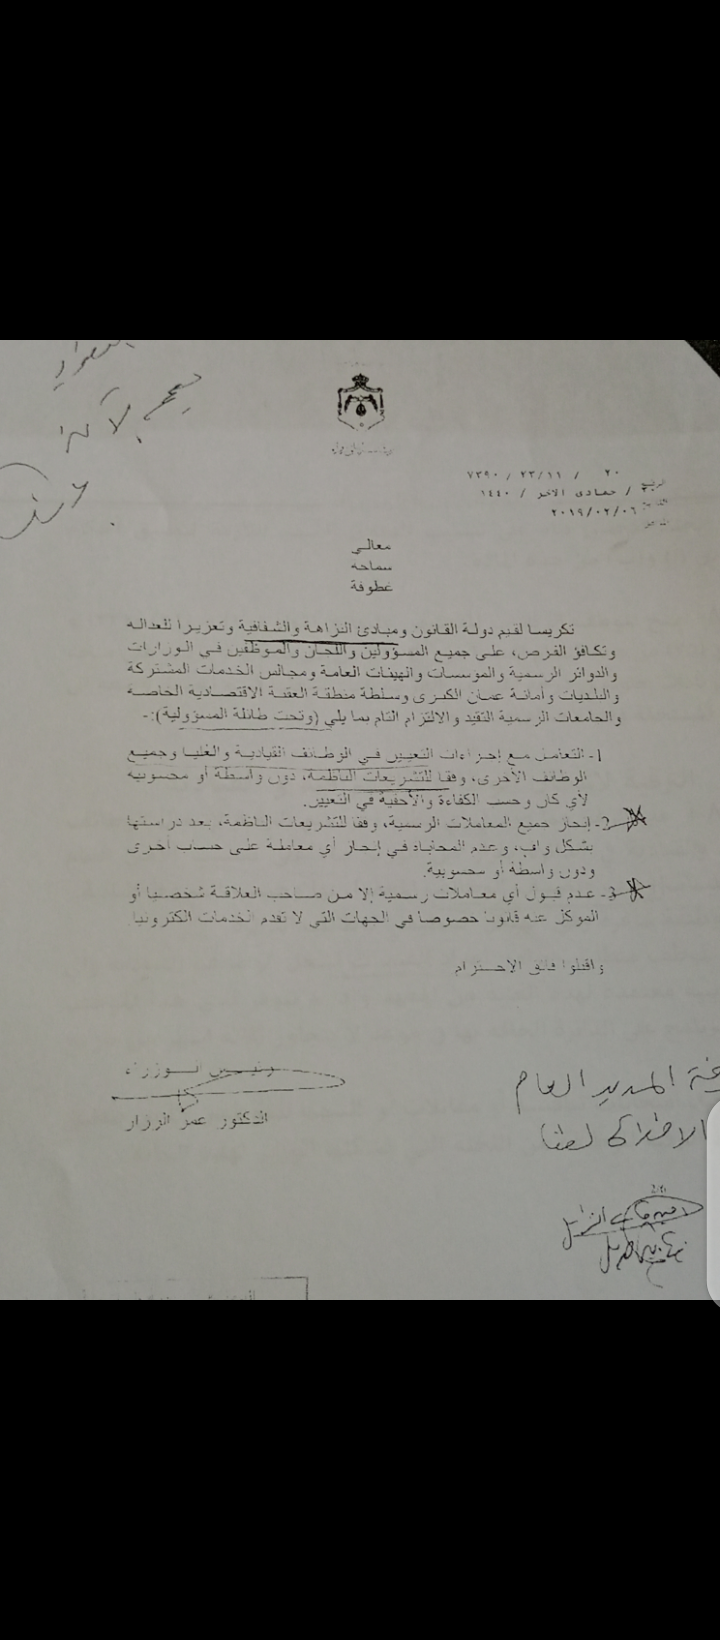 الرقم ٢٠ / ٢٣/١١ / ٧٣٩٠
/ جمادى الآخر / ١٤٤٠
٢٠١٩/٠٢/٠٦
معالي
سماحة
عطوفة
تكريسا لقيم دولة القانون ومبادئ النزاهة والشفافية وتعزيزا للعداله
وتكافؤ الفرص، على جميع المسؤولين واللجان والموظفين في الوزارات
والدوائر الرسمية والمؤسسات والهيئات العامة ومجالس الخدمات المشتركة
والبلديات وأمانة عمان الكبرى وسلطة منطقة العقبة الاقتصادية الخاصة
والجامعات الرسمية التقيد والالتزام التام بما يلي (وتحت طائلة المسؤولية):-
1- التعامل مع إجراءات التعيين في الوظائف القيادية والعليا وجميع
الوظائف الأخرى، وفقا للتشريعات الناظمة، دون واسطة أو محسوبية
لأي كان وحسب الكفاءة والأحقية في التعيين.
2- إنجاز جميع المعاملات الرسمية، وفقا للتشريعات الناظمة، بعد دراستها
بشكل واف، وعدم المحاباة في إنجاز أي معاملة على حساب أخرى
ودون واسطة أو محسوبية.
3- عدم قبول أي معاملات رسمية إلا من صاحب العلاقة شخصيا أو
الموكل عنه قانونا خصوصا في الجهات التي لا تقدم الخدمات الكترونيا
واقبلوا فائق الاحترام
رئيس الوزراء
الدكتور عمر الرزاز
المدير العام